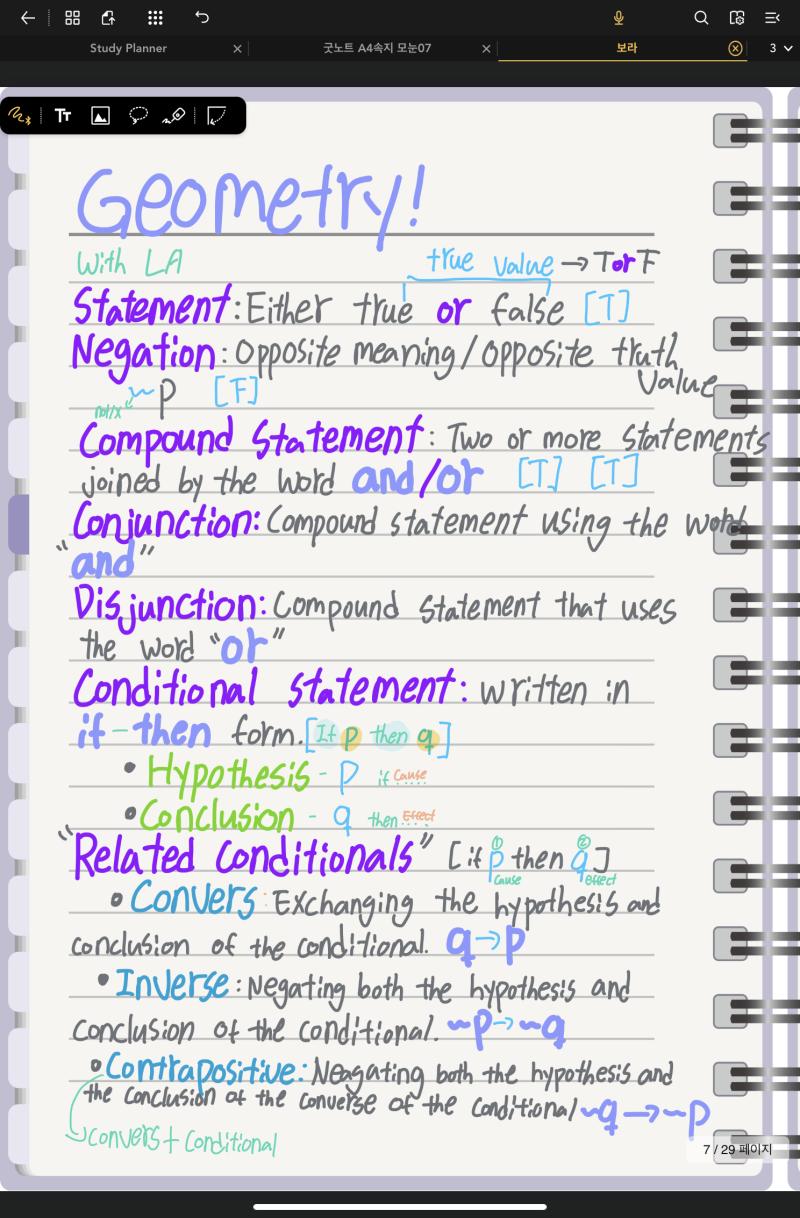 Study Planner
굿노트 A4속지 모눈07
보라
3
Geometry!
With LA
true value → T or F
Statement: Either true or false [T]
Negation: Opposite meaning/opposite truth
value
~p [F]
not/x
Compound Statement: Two or more statements
joined by the word and/or [T] [T]
Conjunction: Compound statement using the word
"and"
Disjunction: Compound Statement that uses
the word "or"
Conditional statement: written in
if-then form. [If p then q]
• Hypothesis - p if Cause
• Conclusion - q then Effect
"Related Conditionals" [if p then q]
① ②
Cause Effect
• Convers: Exchanging the hypothesis and
conclusion of the conditional. q→p
• Inverse: Negating both the hypothesis and
Conclusion of the conditional. ~p→~q
• Contrapositive: Neagating both the hypothesis and
the conclusion of the converse of the conditional ~q→~p
convers + conditional
7 / 29 페이지